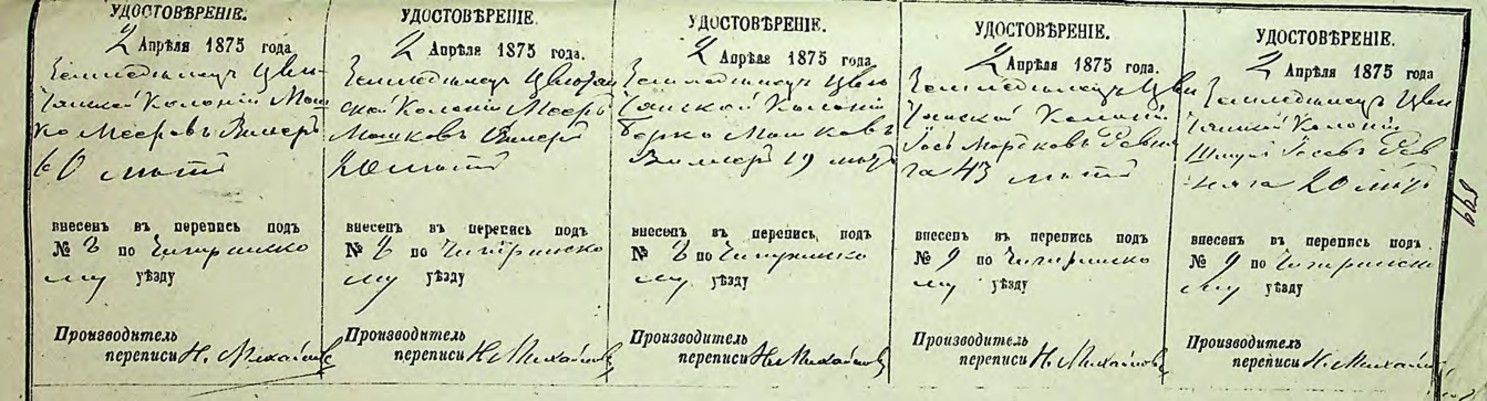 УДОСТОВѢРЕНІЕ.
2 Апрѣля 1875 года
Земледѣлецъ
Колоніи Мош
ко Мееровъ Вилнеръ
60 лѣтъ
внесенъ въ перепись подъ
№ 8 по Чигиринско
му уѣзду
Производитель
переписи Н. Михайлов
УДОСТОВѢРЕНІЕ.
2 Апрѣля 1875 года.
Земледѣлецъ
ской Колоніи Мееръ
Мошковъ
20 лѣтъ
внесенъ въ перепись подъ
№ 8 по Чигиринско
му уѣзду
Производитель
переписи Н. Михайлов
УДОСТОВѢРЕНІЕ.
2 Апрѣля 1875 года.
Земледѣлецъ
Колоніи
Берко Мошковъ
19 лѣтъ
внесенъ въ перепись подъ
№ 8 по Чигиринско
му уѣзду
Производитель
переписи Н. Михайлов
УДОСТОВѢРЕНІЕ.
2 Апрѣля 1875 года.
Земледѣлецъ
Колоніи
Іось Мордковъ Ревня
га 43 лѣтъ
внесенъ въ перепись подъ
№ 9 по Чигиринско
му уѣзду
Производитель
переписи Н. Михайлов
УДОСТОВѢРЕНІЕ.
2 Апрѣля 1875 года
Земледѣлецъ
Колоніи
Іосевъ Рев
няга 20 лѣтъ
внесенъ въ перепись подъ
№ 9 по Чигиринско
му уѣзду
Производитель
переписи Н. Михайлов